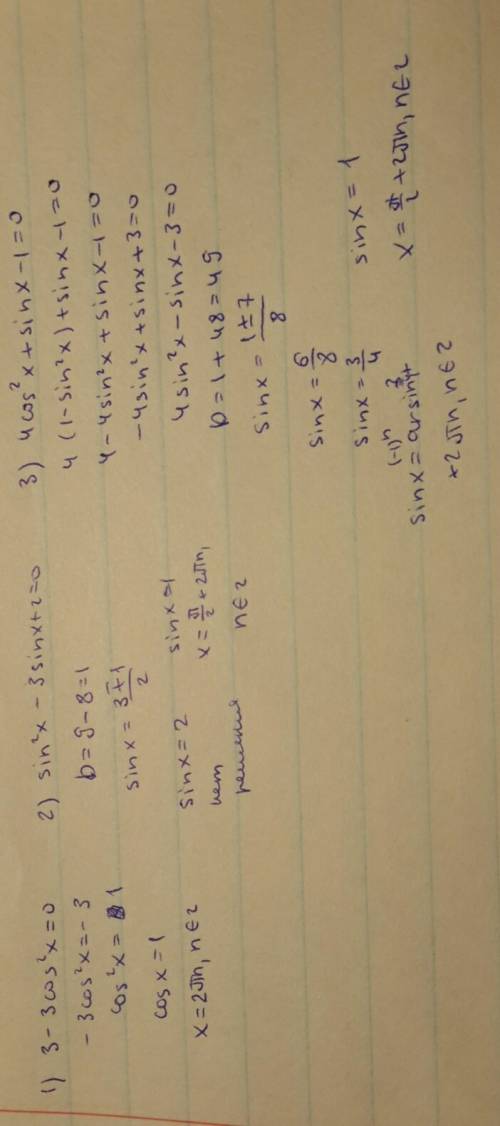 1) 3 - 3cos²x = 0
- 3cos²x = - 3
cos²x = 1
cos x = 1
x = 2πn, n ∈ z
2) sin²x - 3 sinx + 2 = 0
D = 9 - 8 = 1
sinx = 3±1/2
sinx = 2
нет
решения
sinx = 1
x = π/2 + 2πn,
n ∈ z
3) 4cos²x + sinx - 1 = 0
4 (1 - sin²x) + sinx - 1 = 0
4 - 4sin²x + sinx - 1 = 0
- 4sin²x + sinx + 3 = 0
4sin²x - sinx - 3 = 0
D = 1 + 48 = 49
sinx = 1±7/8
sinx = 6/8
sinx = 3/4
sinx = (-1)ⁿ arsin 3/4 +
+ 2πn, n ∈ z
sinx = 1
x = π/2 + 2πn, n ∈ z